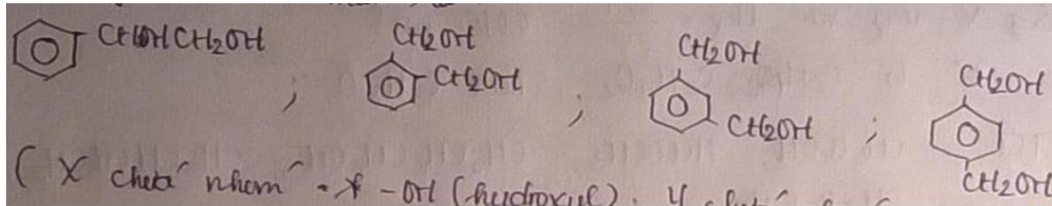 CHOHCH2OH ; CH2OH CH2OH ; CH2OH CH2OH ; CH2OH CH2OH
(X chứa nhóm - OH (hydroxyl).